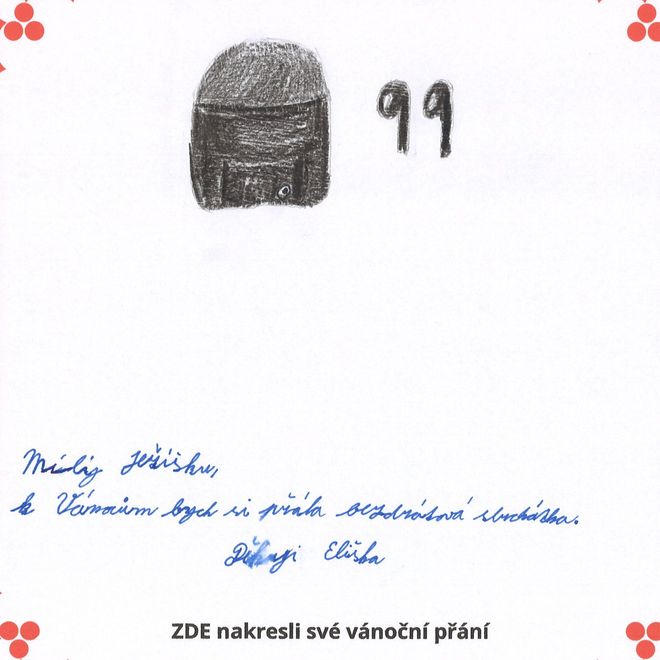 Milý Ježíšku,
k Vánocům bych si přála bezdrátová sluchátka.
Děkuji Eliška
ZDE nakresli své vánoční přání